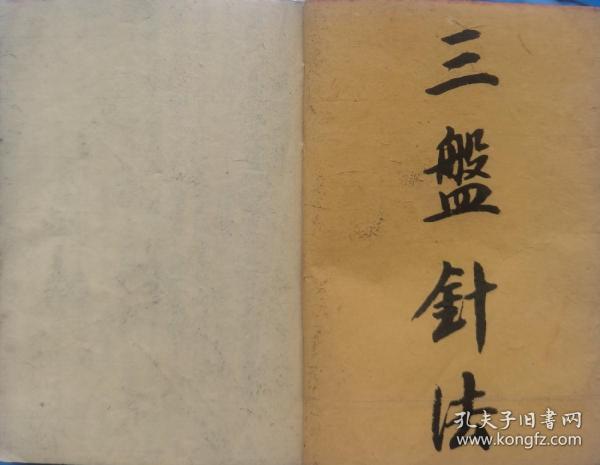 三盤針法
孔夫子旧書网
www.kongfz.com